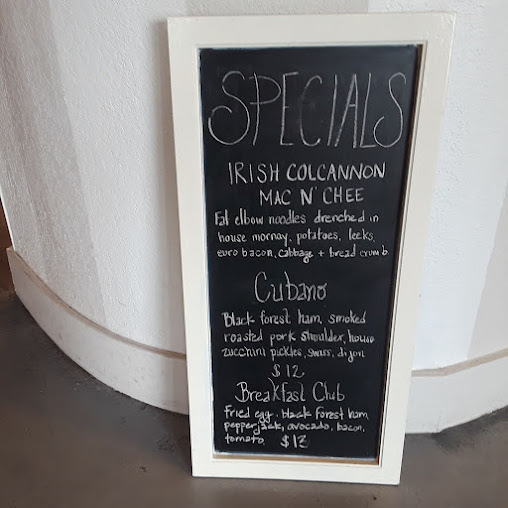 SPECIALS
IRISH COLCANNON
MAC N' CHEE
Fat elbow noodles drenched in
house mornay, potatoes, leeks,
euro bacon, cabbage + bread crumb
Cubano
Black forest ham, smoked
roasted pork shoulder, house
zucchini pickles, swiss, dijon
$12
Breakfast Club
Fried egg, black forest ham,
pepperjack, avocado, bacon,
tomato, $13